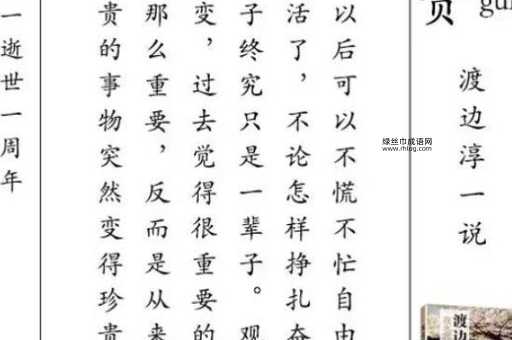 渡边淳一说
渡边
绿丝巾成语网
以后可以不慌不忙自由
活了，不论怎样挣扎奋
子终究只是一辈子。观
变，过去觉得很重要的
那么重要，反而是从来
贵的事物突然变得珍贵
一逝世一周年